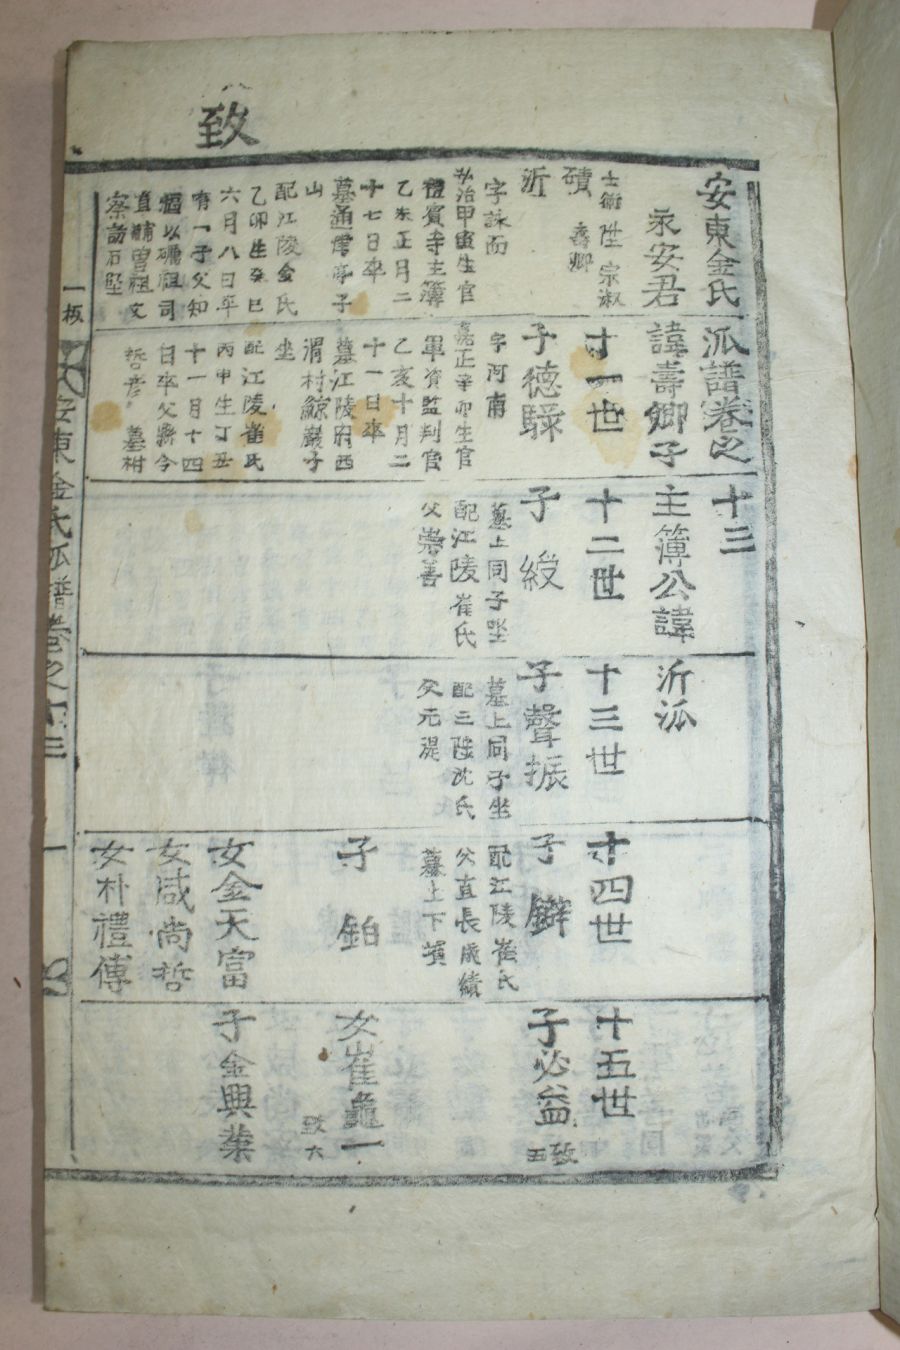 致
安東金氏派譜卷之十三
永安君諱壽卿子主簿公諱沂派
士衡 陞 宗淑
磧 壽卿
十一世
十二世
十三世
十四世
十五世
沂
字詠而
弘治甲寅生官
禮賓寺主簿
乙未正月二
十七日卒
墓通堤亭子
山
配江陵金氏
乙卯生癸巳
六月八日卒
有一子父知
禍以礪祖司
直輔曽祖文
察訪石堅
子德騄
字河南
嘉正辛卯生官
軍資監判官
乙亥十月二
十一日卒
墓江陵府西
渭村鯨巖子
坐
配江陵崔氏
丙申生丁丑
十一月十四
日卒父縣令
哲彦 墓祔
子綬
墓上同子坐
配江陵崔氏
父崇善
子聲振
墓上同子坐
配三陟沈氏
父元湜
子鑻
配江陵崔氏
父直長成績
墓上下墳
子必益
致五
子鉑
女崔龜一
致六
女金天富
子金興業
女咸尙哲
女朴禮傅
一板
安東金氏派譜卷之十三
一